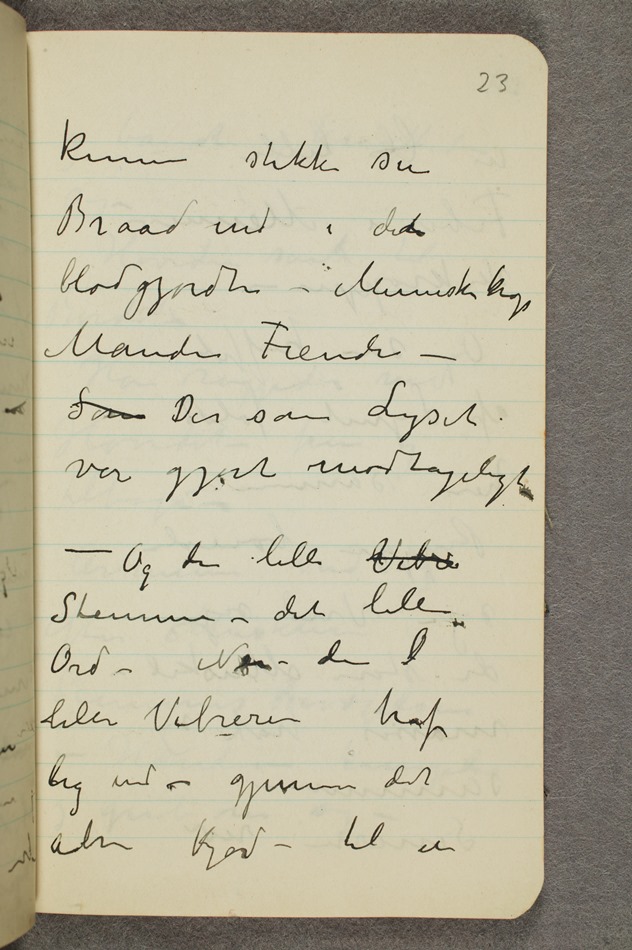 23
kunne stikke sin
Braad ind i det
blodgjordte – Menneskekrop
Mandens Fiende –
Som Der som Lyset
var gjort modtageligt
– Og den lille Vibre
Stemme – det lille
Ord – den l
lille Vibreren traf
lig ind – gjennem det
Kjød – til en